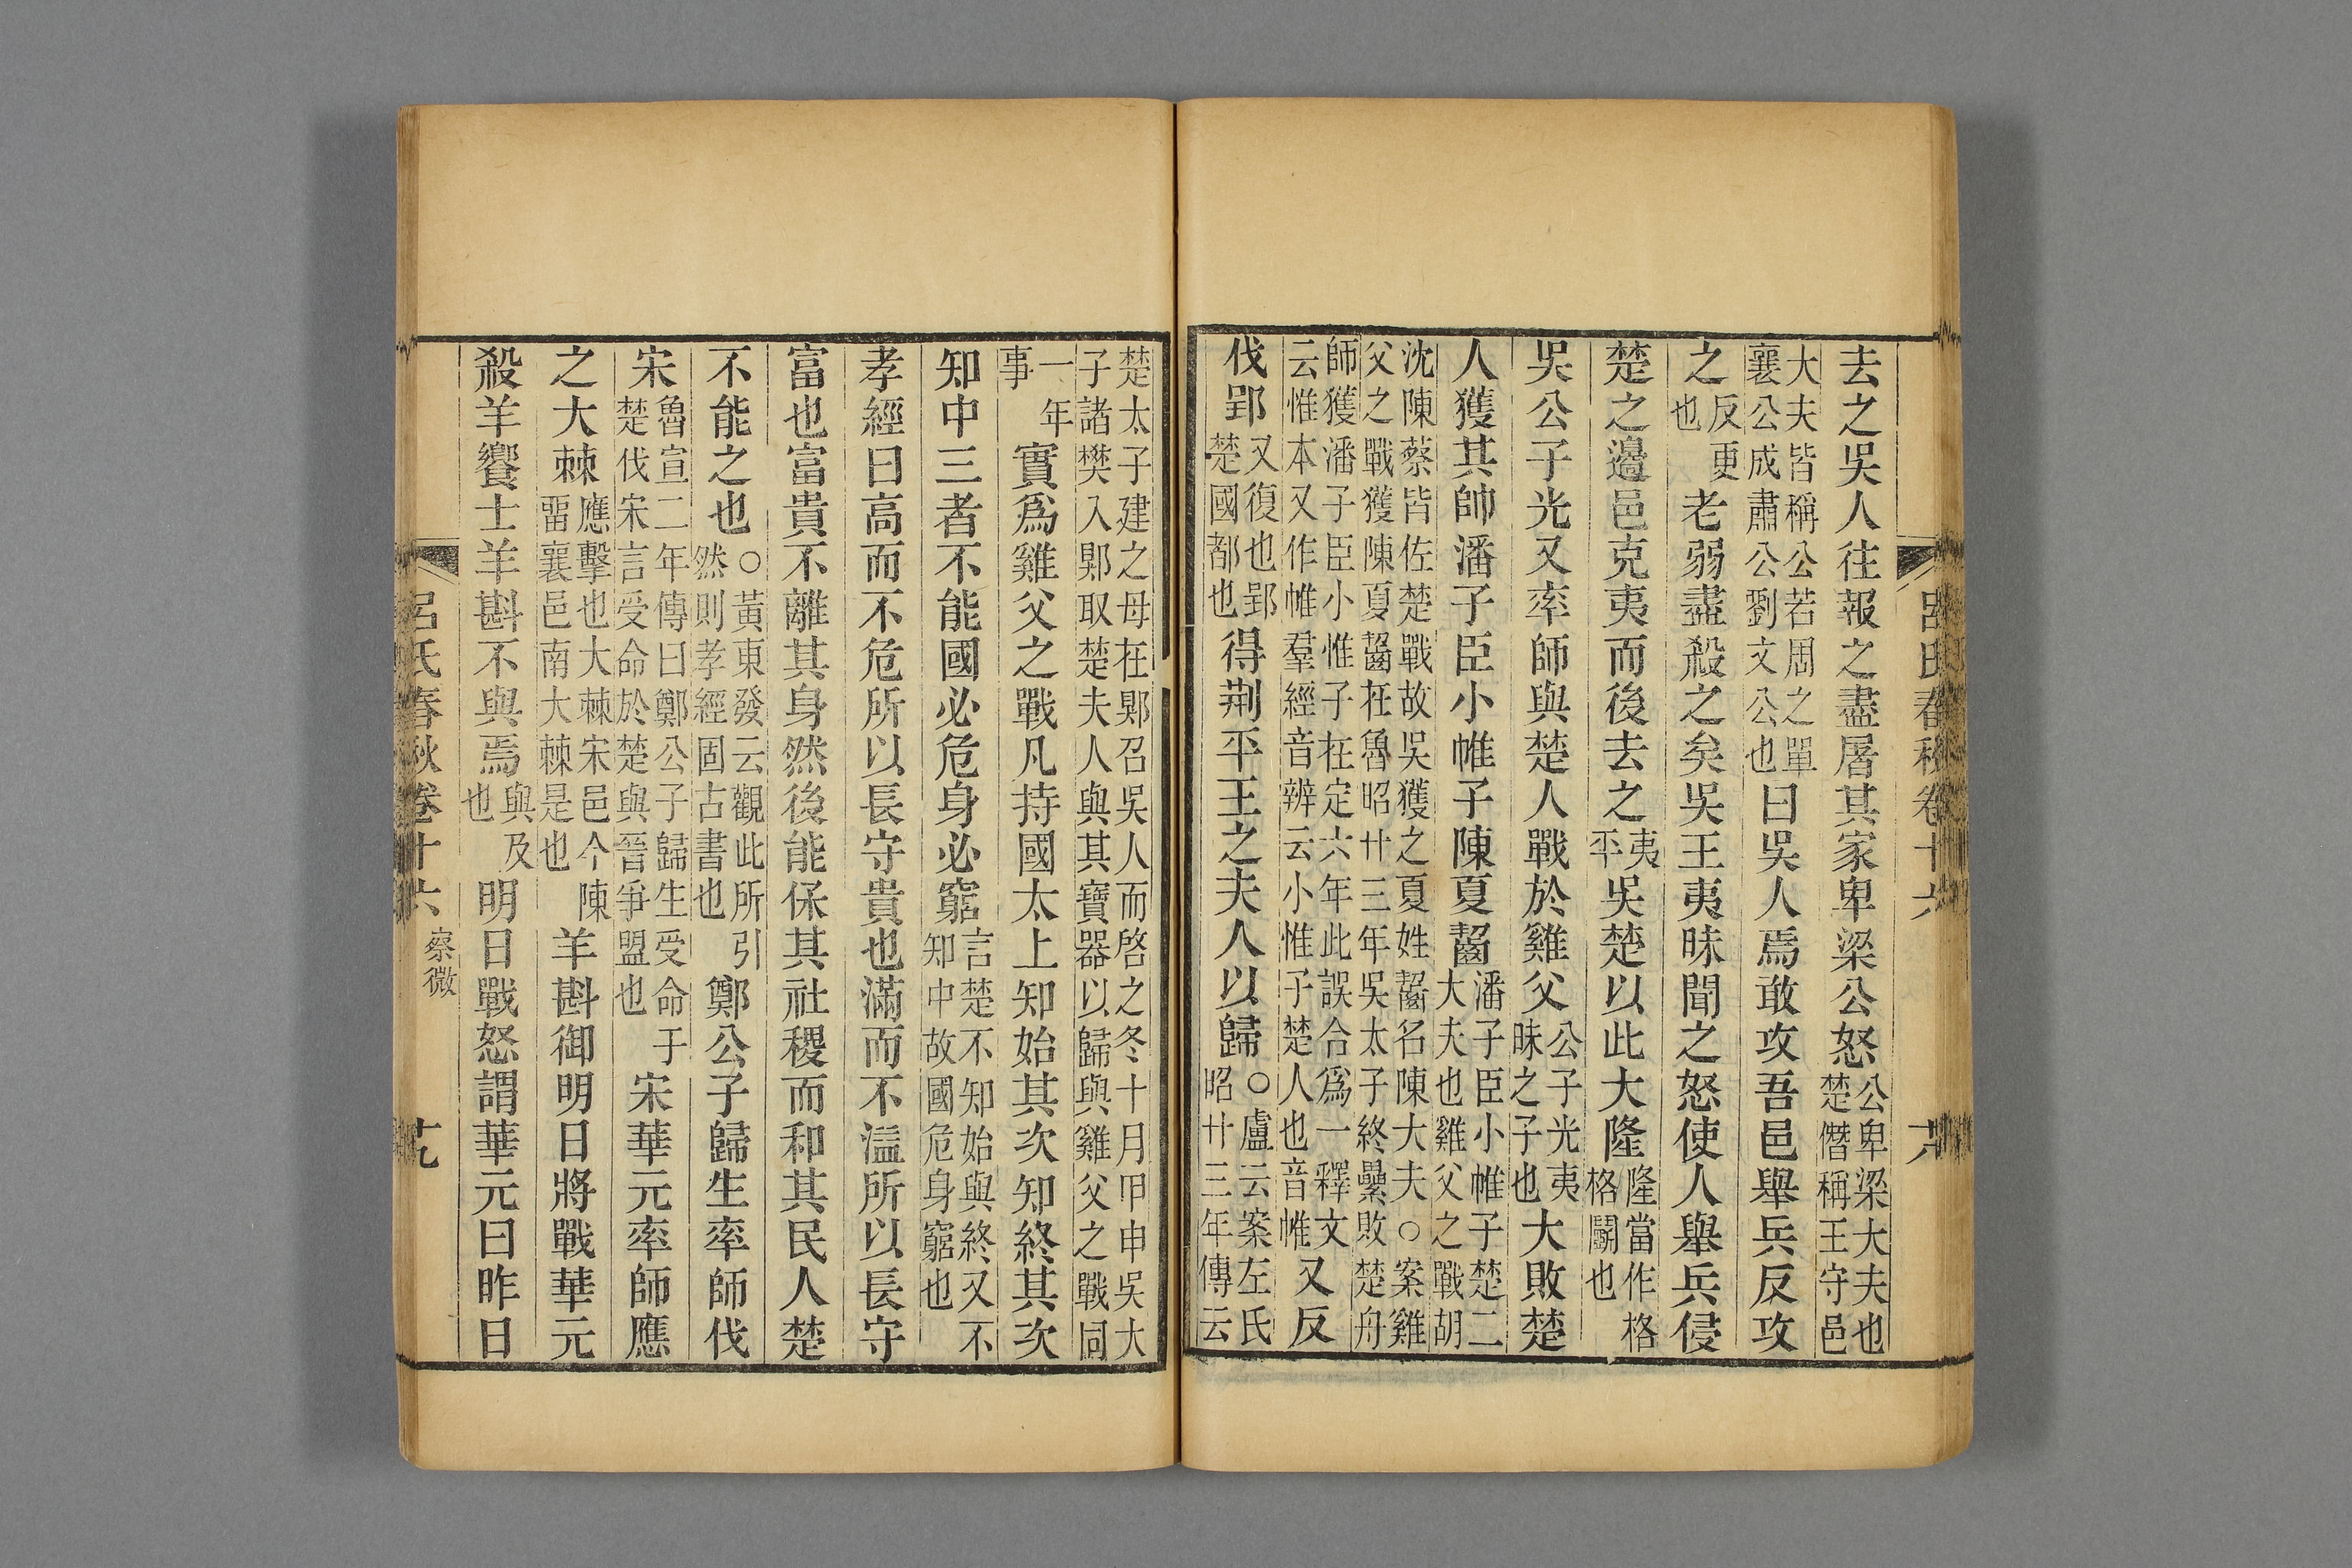 呂氏春秋卷十六
去之吳人往報之盡屠其家卑梁公怒公卑梁大夫也楚僭稱王守邑
大夫皆稱公若周之單襄公成肅公劉文公也曰吳人焉敢攻吾邑舉兵反攻
之反更也老弱盡殺之矣吳王夷昧聞之怒使人舉兵侵
楚之邊邑克夷而後去之夷平吳楚以此大隆隆當作格格鬭也
吳公子光又率師與楚人戰於雞父公子光夷昧之子也大敗楚
人獲其帥潘子臣小帷子陳夏齧潘子臣小帷子楚二大夫也雞父之戰胡
沈陳蔡皆佐楚戰故吳獲之夏姓齧名陳大夫○案雞父之戰獲陳夏齧在魯昭廿三年吳太子終纍敗楚舟
師獲潘子臣小惟子在定六年此誤合爲一釋文云惟本又作帷羣經音辨云小惟子楚人也音帷又反
伐郢又復也郢楚國都也得荆平王之夫人以歸○盧云案左氏昭廿三年傳云
楚太子建之母在郹召吳人而啓之冬十月甲申吳大子諸樊入郹取楚夫人與其寶器以歸與雞父之戰同
一年事實爲雞父之戰凡持國太上知始其次知終其次
知中三者不能國必危身必窮言楚不知始與終又不知中故國危身窮也
孝經曰高而不危所以長守貴也滿而不溢所以長守
富也富貴不離其身然後能保其社稷而和其民人楚
不能之也○黃東發云觀此所引然則孝經固古書也鄭公子歸生率師伐
宋魯宣二年傳曰鄭公子歸生受命于楚伐宋言受命於楚與晉爭盟也宋華元率師應
之大棘應擊也大棘宋邑今陳畱襄邑南大棘是也羊斟御明日將戰華元
殺羊饗士羊斟不與焉與及也明日戰怒謂華元曰昨日
呂氏春秋卷十六 察微 廿九